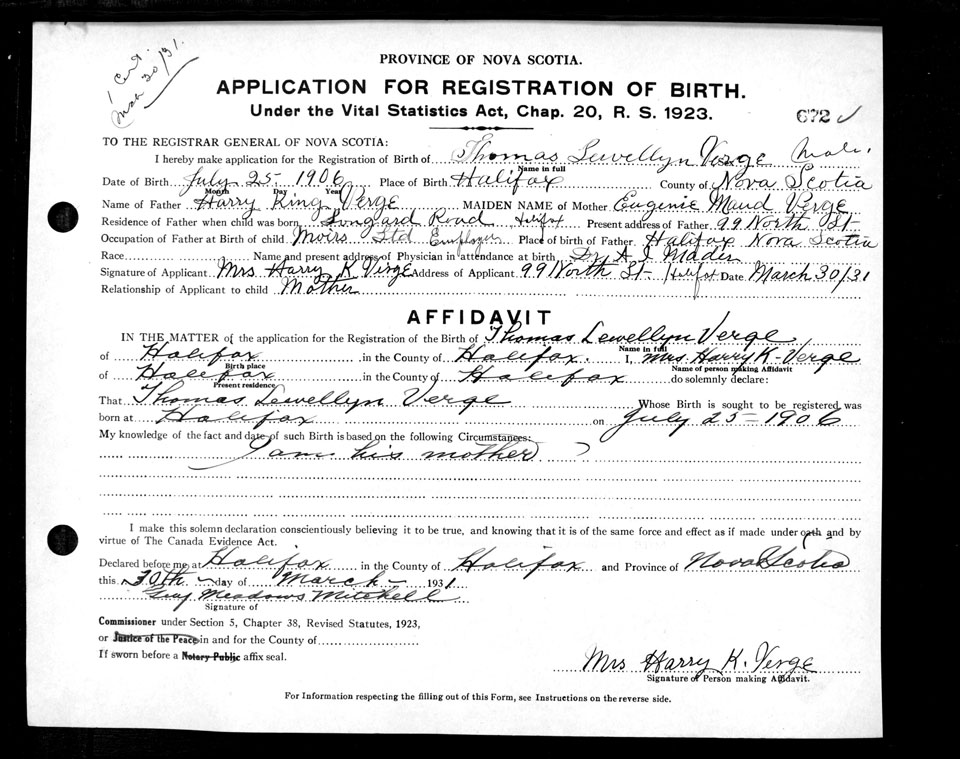 1 Cert.
Mar 30/31.
PROVINCE OF NOVA SCOTIA.
APPLICATION FOR REGISTRATION OF BIRTH.
Under the Vital Statistics Act, Chap. 20, R. S. 1923.
672
TO THE REGISTRAR GENERAL OF NOVA SCOTIA:
I hereby make application for the Registration of Birth of Thomas Lewellyn Verge Male.
Name in full
Date of Birth July 25 1906 Place of Birth Halifax County of Nova Scotia
Month Day Year
Name of Father Harry King Verge MAIDEN NAME of Mother Eugenie Maud Verge
Residence of Father when child was born Longard Road Halifax Present address of Father 99 North St.
Occupation of Father at Birth of child Moirs Ltd Place of birth of Father Halifax Nova Scotia
Race Name and present address of Physician in attendance at birth Dr A I Mader
Signature of Applicant Mrs Harry K. Verge Address of Applicant 99 North St Halifax Date March 30/31
Relationship of Applicant to child Mother
AFFIDAVIT
IN THE MATTER of the application for the Registration of the Birth of Thomas Lewellyn Verge
Name in full
of Halifax in the County of Halifax. I, Mrs Harry K. Verge
Birth place Name of person making Affidavit
of Halifax in the County of Halifax do solemnly declare:
Present residence
That Thomas Lewellyn Verge Whose Birth is sought to be registered was
born at Halifax on July 25 = 1906
My knowledge of the fact and date of such Birth is based on the following Circumstances:
I am his mother
I make this solemn declaration conscientiously believing it to be true, and knowing that it is of the same force and effect as if made under oath and by
virtue of The Canada Evidence Act.
Declared before me at Halifax in the County of Halifax and Province of Nova Scotia
this 30th day of March 1931
Guy Meadows Mitchell
Signature of
Commissioner under Section 5, Chapter 38, Revised Statutes, 1923,
or Justice of the Peace in and for the County of
If sworn before a Notary Public affix seal.
Mrs Harry K. Verge
Signature of Person making Affidavit.
For Information respecting the filling out of this Form, see Instructions on the reverse side.